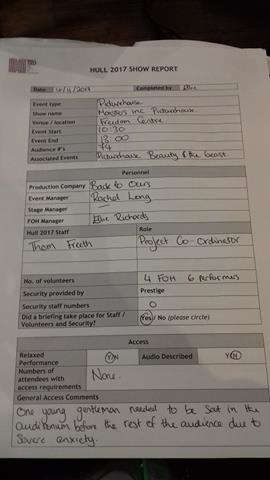 HULL 2017 SHOW REPORT
Date 4/11/2017 Completed by Ellie
Event type Picturehouse
Show name Monsters Inc Picturehouse
Venue / location Freedom Centre
Event Start 10:30
Event End 13:00
Audience #'s 74
Associated Events Picturehouse Beauty & the beast
Personnel
Production Company Back to Ours
Event Manager Rachel Long
Stage Manager
FOH Manager Ellie Richards
Hull 2017 Staff Role
Thom Freeth Project Co-Ordinator
No. of volunteers 4 FOH 6 Performers
Security provided by Prestige
Security staff numbers 0
Did a briefing take place for Staff / Yes / No (please circle)
Volunteers and Security?
Access
Relaxed Performance Y/N Audio Described Y/N
Numbers of attendees with access requirements None.
General Access Comments
One young gentleman needed to be sat in the
auditorium before the rest of the audience due to
severe anxiety.